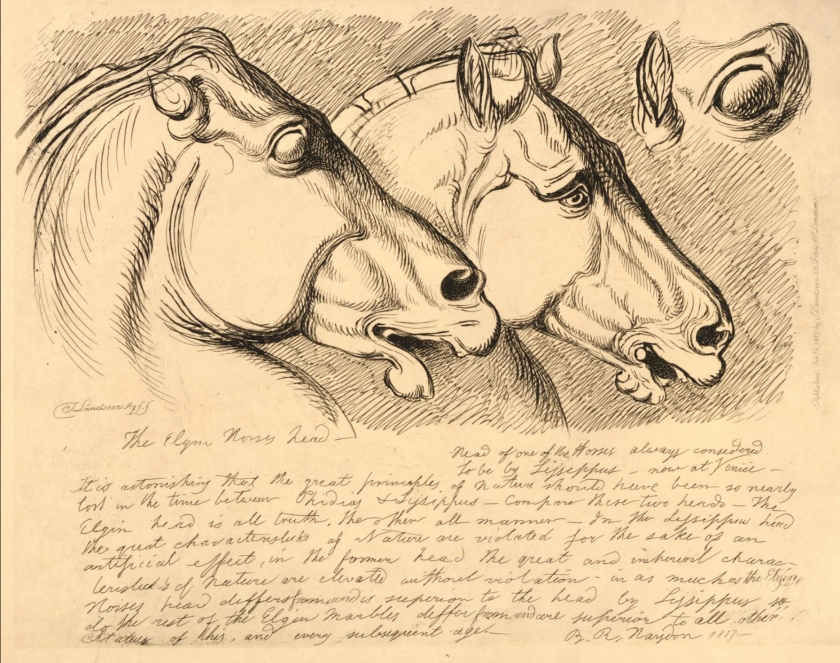 The Elgin Horses head—
Head of one of the Horses always considered
to be by Lysippus - now at Venice -
It is astonishing that the great principles of Nature should have been so nearly
lost in the time between Phidias & Lysippus — Compare these two heads — The
Elgin head is all truth, the other all manner — In the Lysippus head
the great characteristicks of Nature are violated for the sake of an
artificial effect, in the former head the great and inherent charac-
teristick's of nature are elevated without violation - in as much as the Elgin
Horses head differs from, and is superior to the head by Lysippus so
do the rest of the Elgin Marbles differ from, and are superior to all other
Statues of this, and every subsequent age.—
B. R. Haydon 1817—